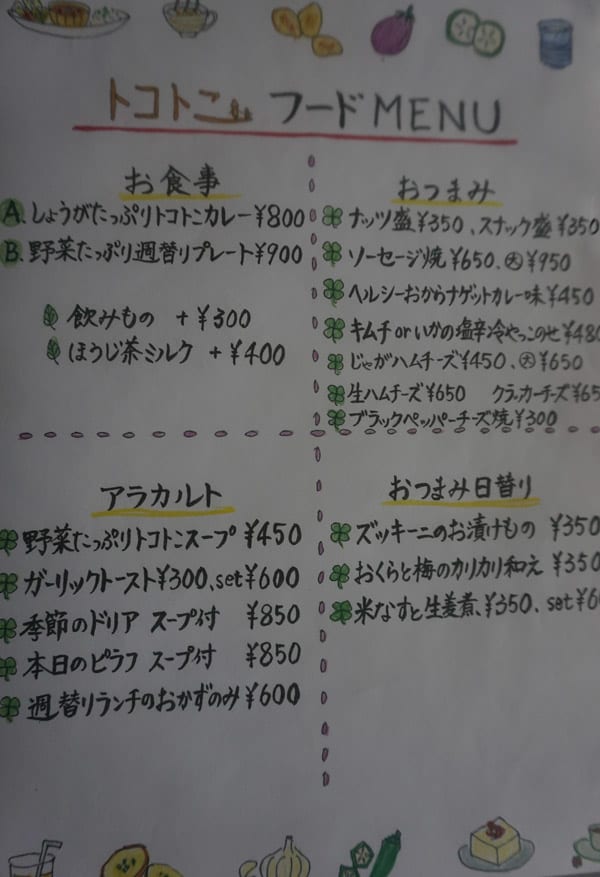 トコトこ フードMENU
お食事
A. しょうがたっぷりトコトンカレー¥800
B. 野菜たっぷり週替りプレート¥900
飲みもの +¥300
ほうじ茶ミルク +¥400
おつまみ
ナッツ盛¥350、スナック盛¥350
ソーセージ焼¥650、大¥950
ヘルシーおからナゲットカレー味¥450
キムチorいかの塩辛冷やっこのせ¥480
じゃがハムチーズ¥450、大¥650
生ハムチーズ¥650 クラッカーチーズ¥65
ブラックペッパーチーズ焼¥300
アラカルト
野菜たっぷりトコトンスープ ¥450
ガーリックトースト¥300、set¥600
季節のドリア スープ付 ¥850
本日のピラフ スープ付 ¥850
週替りランチのおかずのみ¥600
おつまみ日替り
ズッキーニのお漬けもの ¥350
おくらと梅のカリカリ和え ¥350
米なすと生姜煮、¥350、set¥6